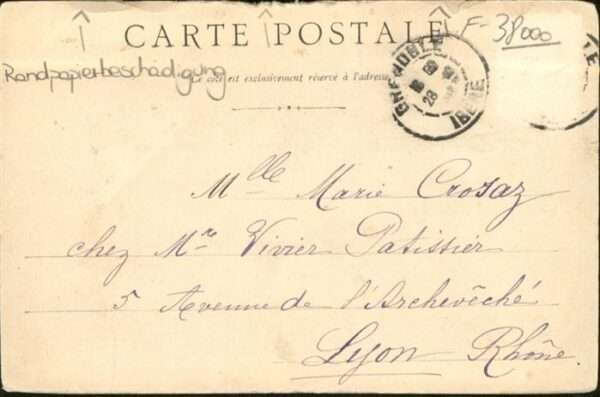 CARTE POSTALE
F-38000
Randpapierbeschädigung
Ce côté est exclusivement réservé à l'adresse
GRENOBLE
28
ISERE
LE
Mlle Marie Crozaz
chez Mr Vivier Patissier
5 Avenue de l'Archevêché
Lyon Rhône.